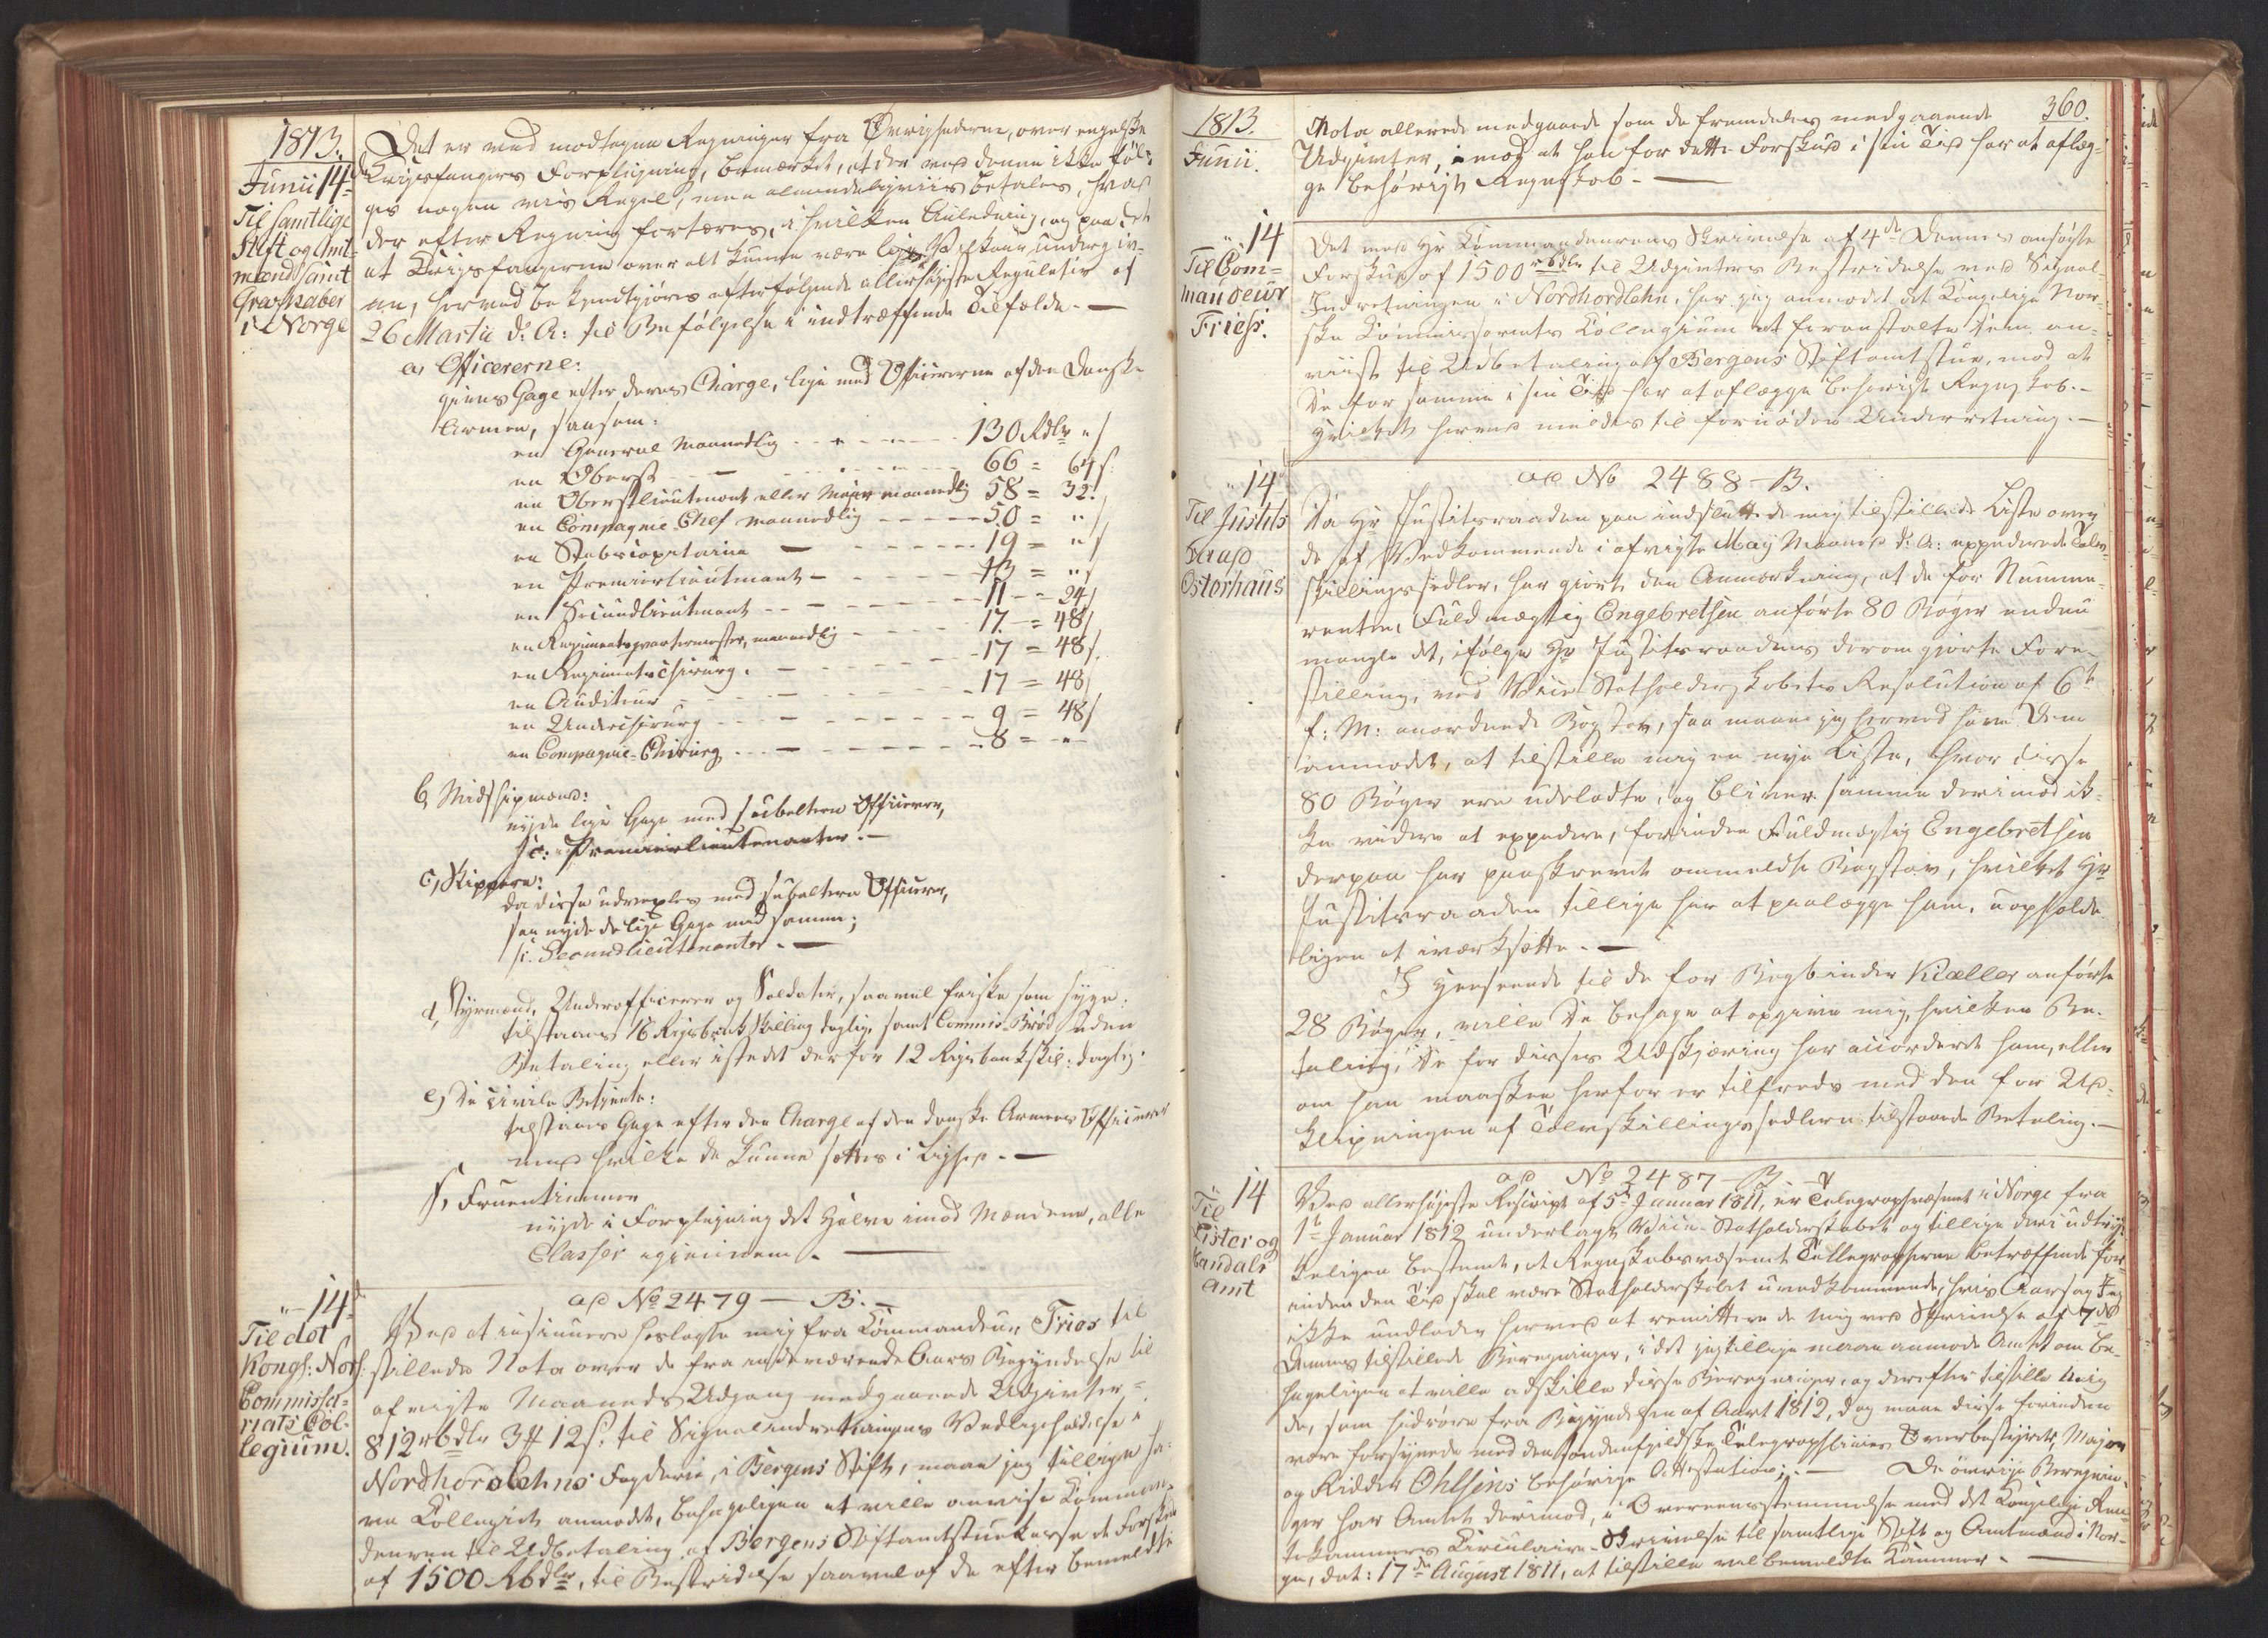 1813.
Junii 14de
Til samtlige
Stift og Amt-
mænd samt
Grevskaber
i Norge
Det er ved modtagne Regninger fra Øvrighederne, over engelske
Krigsfangers Forplejning, bemærket, at der ved denne ikke føl-
ges nogen vis Regel, men almindeligviis betales, hvad
der efter Regning fortæres, i hvilken Anledning, og paa det
at Krigsfangerne over alt kunne være lige Vilkaar undergiv-
ne, herved bekjendtgjøres efterfølgende allerhøjeste Regulativ af
26 Martii d: A: til Befølgelse i indtræffende Tilfælde. —
a, Officererne:
Gage efter deres Charge, lige med Officererne af den danske
Armee, saasom:
en General maanedlig - - - - 130 Rdlr " s
en Oberst — - - - - 66 = 64 s.
en Oberstlieutenant eller Major maanedlig 58 = 32.
en Compagnie Chef maanedlig - - - - 50 = " s
en Stabscapitaine — - - - - 19 = " s
en Premierlieutenant - - - - 13 = " s
en Secundlieutenant - - - - 11 - = 24 s
en Regimentsqvarteermester, maanedlig - - 17 - = 48 s
en Regimentschirurg. - - - - 17 = 48 s.
en Auditeur - - - - 17 = 48 s
en Underchirurg - - - - 9 = 48 s
en Compagnie-Chirurg - - - - 8 = - " -
b, Midshipmænd:
nyde lige Gage med subaltern Officerer,
s: Premierlieutenanter. —
c, Skippere:
da disse udvexles med subaltern Officerer,
saa nyde de lige Gage med samme;
s: Secundlieutenanter. —
d, Styrmænd, Underofficerer og Soldater, saavel friske som syge:
tilstaaes 16 Rigsbankskilling daglig, samt Commis-Brød uden
Betaling eller istedet derfor 12 Rigsbankskil: daglig.
e, De civile Betjente:
tilstaaes Gage efter den Charge af den danske Armees Officerer
med hvilke de kunne sættes i Lighed. —
f, Fruentimmer
nyde i Forplejning det Halve imod Mændene, alle
Classer igjennem. —
" - 14de
Til det
Kongl: Norske
Commissa-
riats Col-
legium.
ad No 2479 — B. —
Ved at insinuere hoslagte mig fra Commandeur Fries til-
stillede Nota over de fra indeværende Aars Begyndelse til
afvigte Maaneds Udgang medgaaede Udgivter =
812 rbdlr 3 # 12 s. til Signalindretningens Vedligeholdelse i
Nordhordlehns Fogderie, i Bergens Stift, maae jeg tillige ha-
ve Collegiet anmodet, behageligen at ville anvise Comman-
deuren til Udbetaling af Bergens Stiftamtstuekasse et Forskud
af 1500 Rbdlr, til Bestridelse saavel af de efter bemeldte
1813.
Junii.
360.
Nota allerede medgaaede som de fremdeles medgaaende
Udgivter, imod at han for dette Forskud i sin Tid har at aflæg-
ge behørigt Regnskab. —
" 14
Til Com-
mandeur
Friess.
Det med Hr Commandeurens Skrivelse af 4de Dennes ansøgte
Forskud af 1500 rbdlr til Udgivters Bestridelse ved Signal-
Indretningen i Nordhordlehn, har jeg anmodet det Kongelige Nor-
ske Commissariats Collegium at foranstalte Dem an-
viist til Udbetaling af Bergens Stiftamtstue, mod at
De for samme i sin Tid har at aflægge behørigt Regnskab. —
Hvilket herved meldes til fornøden Underretning. —
" 14
Til Justits
Raad
Osterhaus
ad No 2488 - B.
Da Hr Justitsraaden paa indsluttede mig tilstillede Liste over
de af Vedkommende i afvigte Maij Maaned d: A: expederede Tolv-
skillingssedler, har giort den Anmærkning, at de for Numme-
renten, Fuldmægtig Engebretsen anførte 80 Bøger endnu
mangle det, ifølge Hr Justitsraadens derom giorte Fore-
stilling, ved Vice Statholderskabets Resolution af 6te
f: M: anordnede Bogstav, saa maae jeg herved have Dem
anmodet, at tilstille mig en nye Liste, hvor disse
80 Bøger ere udeladte, og bliver samme derimod ik-
ke videre at expedere, forinden Fuldmægtig Engebretsen
derpaa har paaskrevet ommeldte Bogstav, hvilket Hr
Justitsraaden tillige har at paalægge ham, uopholde-
ligen at iværksætte. —
I Henseende til de for Bogbinder Kiæller anførte
28 Bøger, ville De behage at opgive mig, hvilken Be-
taling, De for disses Udskjæring har accorderet ham, eller
om han maaskee herfor er tilfreds med den for Ud-
klipningen af Tolvskillingssedlerne tilstaaede Betaling. —
" 14
Til
Lister og
Mandals
Amt
ad No 2487 - B —
Ved allerhøjeste Rescript af 5te Januar 1811, er Telegraphvæsenet i Norge fra
1te Januar 1812 underlagt Vice-Statholderskabet og tillige deri udtryk-
keligen bestemt, at Regnskabsvæsenet Tellegrapherne betræffende for-
inden den Tid skal være Statholderskabet uvedkommende, hvis Aarsag jeg
ikke undlader herved at remittere de mig ved Skrivelse af 7de
Dennes tilstillede Beregninger, i det jeg tillige maae anmode Amtet om be-
hageligen at ville adskille disse Beregninger, og derefter tilstille mig
de, som hidrøre fra Begyndelsen af Aaret 1812, dog maae disse forinden
være forsynede med den søndenfjeldske Telegraphlinies Overbestyrer, Major
og Ridder Ohlsens behørige Attestation. — De øvrige Beregnin-
ger har Amtet derimod, i Overeensstemmelse med det Kongelige Ren-
tekammers Circulaire-Skrivelse til samtlige Stift og Amtmænd i Nor-
ge, dat: 17de August 1811, at tilstille velbemeldte Kammer. —